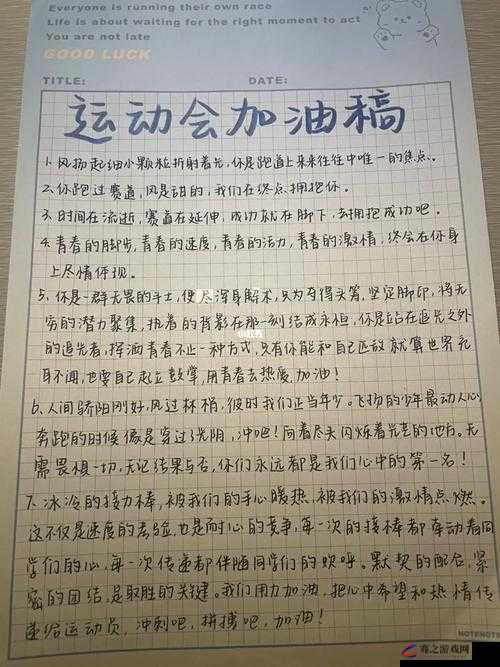 Everyone is running their own race
Life is about waiting for the right moment to act
You are not late
GOOD LUCK
TITLE: DATE:
运动会加油稿
1. 风扬起细小颗粒折射着光,你是跑道上来来往往中唯一的焦点。
2. 你跑过赛道,风是甜的,我们在终点拥抱你。
3. 时间在流逝,赛道在延伸,成功就在脚下,去拥抱成功吧。
4. 青春的脚步,青春的速度,青春的活力,青春的激情,终会在你身
上尽情体现。
5. 你是一群无畏的斗士,使尽浑身解术,只为夺得头筹,坚定脚印,将无
穷的潜力聚集,执着的背影在那一刻结成永恒,你是站在追光之外
的追光者,挥洒青春不止一种方式,只有你能和自己匹敌就算世界充
耳不闻,也要自己起立鼓掌,用青春去热度,加油!
6. 人间骄阳刚好,风过林梢,彼时我们正当年少。飞扬的少年最动人心
奔跑的时候像是穿过光阴,冲吧!向着尽头闪烁着光芒的地方。无
需畏惧一切,无论结果与否,你们永远都是我们心中的第一名!
7. 冰冷的接力棒,被我们的手心暖热,被我们的激情点燃。
这不仅是速度的考验,也是耐心的竞争,每一次的接棒都牵动着同
学们的心,每一次传递都伴随同学们的欢呼。默契的配合,紧
密的团结,是取胜的关键。我们用力加油,把心中希望和热情传
递给运动员,冲刺吧,拼搏吧,加油!
NOTENOTE
骞之游戏网